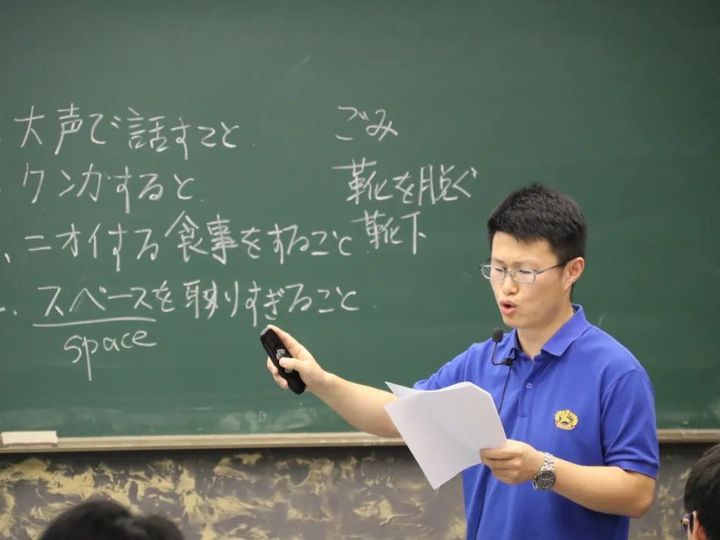 大声で話すこと
ケンカすると
ニオイする食事をすること
スペースを取りすぎること
space
ごみ
靴を脱ぐ
靴下